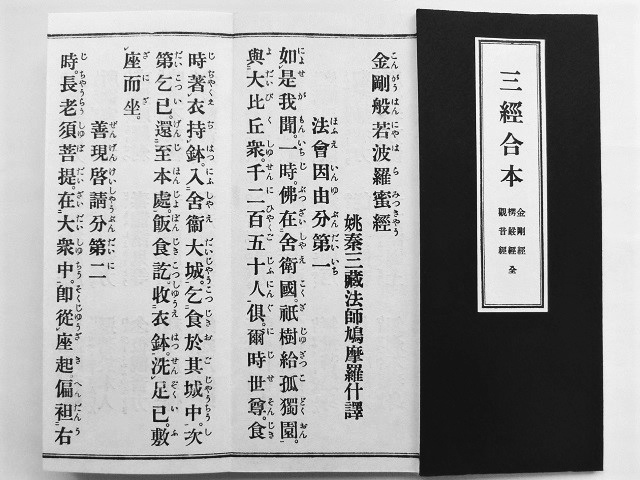 三經合本
金剛經
楞嚴經 全
觀音經
金剛般若波羅蜜經
姚秦三藏法師鳩摩羅什譯
法會因由分第一
如是我聞。一時。佛在舍衞國。祇樹給孤獨園。
與大比丘衆。千二百五十人俱。爾時世尊。食
時。著衣持鉢。入舍衞大城。乞食於其城中。次
第乞已。還至本處。飯食訖。收衣鉢。洗足已。敷
座而坐。
善現啓請分第二
時。長老須菩提。在大衆中。卽從座起。偏袒右